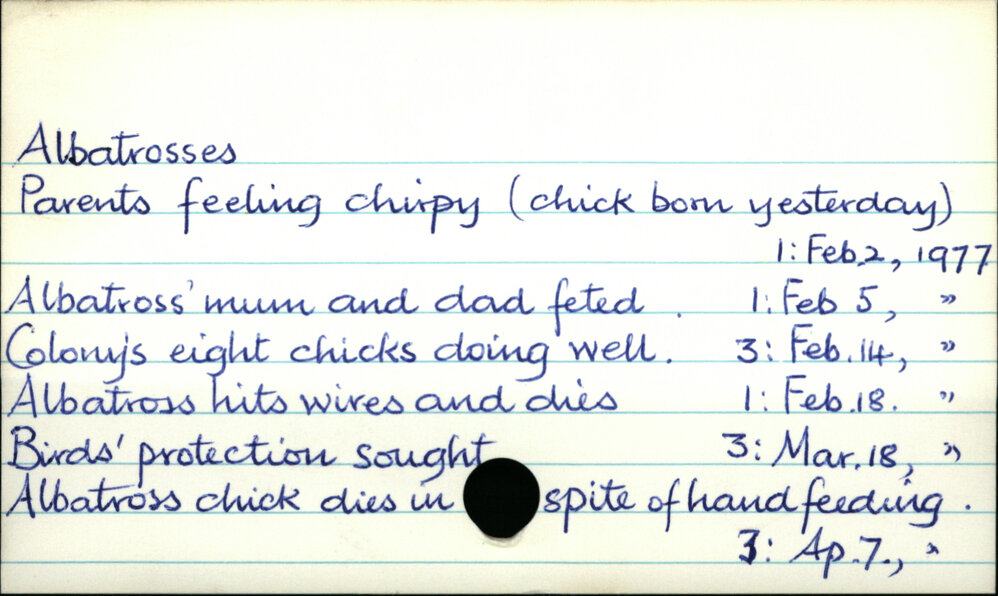 Albatrosses
Parents feeling chirpy (chick born yesterday)
1: Feb.2, 1977
Albatross' mum and dad feted . 1: Feb 5, "
Colony's eight chicks doing well. 3: Feb.14, "
Albatross hits wires and dies 1: Feb.18. "
Birds' protection sought 3: Mar.18, "
Albatross chick dies in spite of hand feeding .
3: Ap.7., "